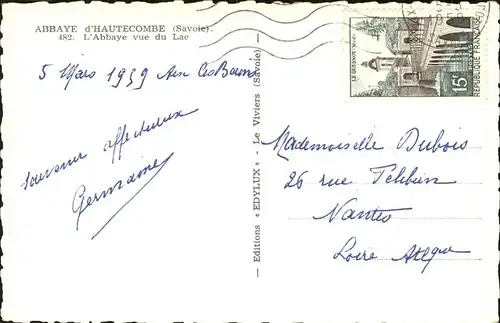 ABBAYE d'HAUTECOMBE (Savoie).
482. L'Abbaye vue du Lac
5 Mars 1959 Aix les Bains
souvenir affectueux
Germaine
— Editions « EDYLUX » - Le Viviers (Savoie) —
LE QUESNOY
15F
POSTES
REPUBLIQUE FRANÇAISE
Mademoiselle Dubois
26 rue
Nantes
Loire Atlque